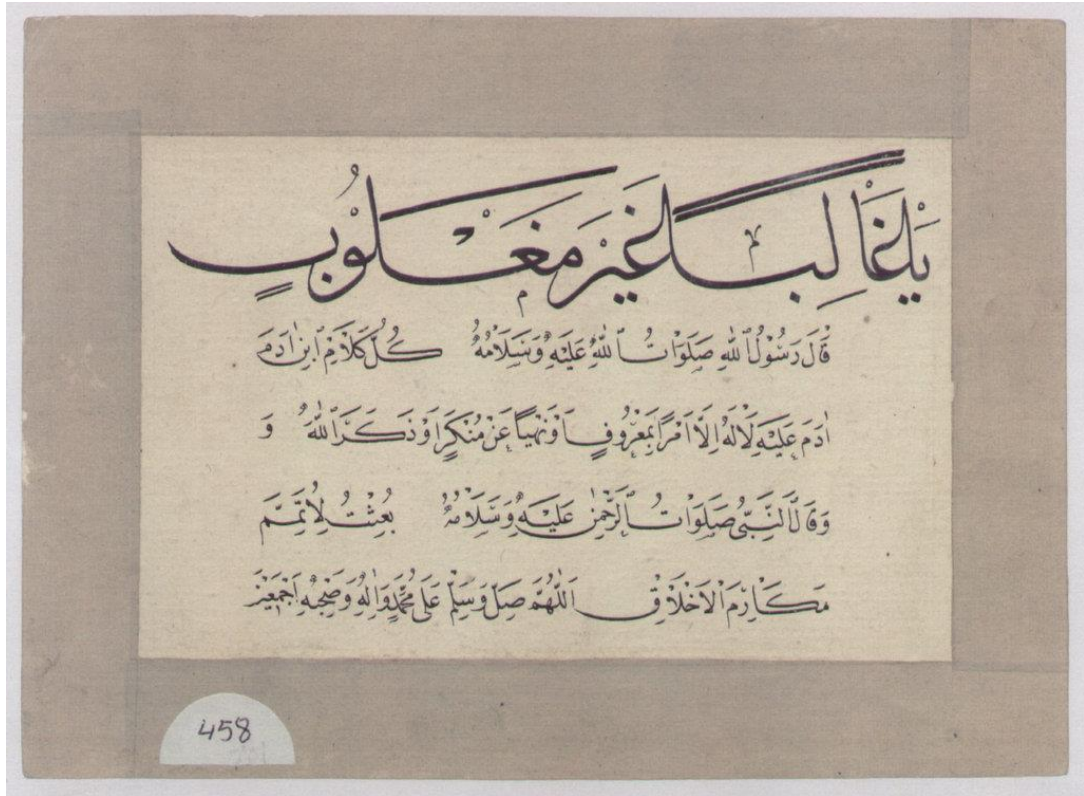 يَا غَالِبًا غَيْرَ مَغْلُوبٍ
قَالَ رَسُولُ ٱللّٰهِ صَلَوَاتُ ٱللّٰهِ عَلَيْهِ وَسَلَامُهُ كُلُّ كَلَامِ ٱبْنِ اٰدَمَ
اٰدَمَ عَلَيْهِ لَا لَهُ اِلَّا اَمْرًا بِمَعْرُوفٍ اَوْ نَهْيًا عَنْ مُنْكَرٍ اَوْ ذَكَرَ ٱللّٰهَ وَ
وَقَالَ ٱلنَّبِيُّ صَلَوَاتُ ٱلرَّحْمٰنِ عَلَيْهِ وَسَلَامُهُ بُعِثْتُ لِاُتَمِّمَ
مَكَارِمَ الْاَخْلَاقِ اَللّٰهُمَّ صَلِّ وَسَلِّمْ عَلَى مُحَمَّدٍ وَاٰلِهِ وَصَحْبِهِ اَجْمَعِينَ
458